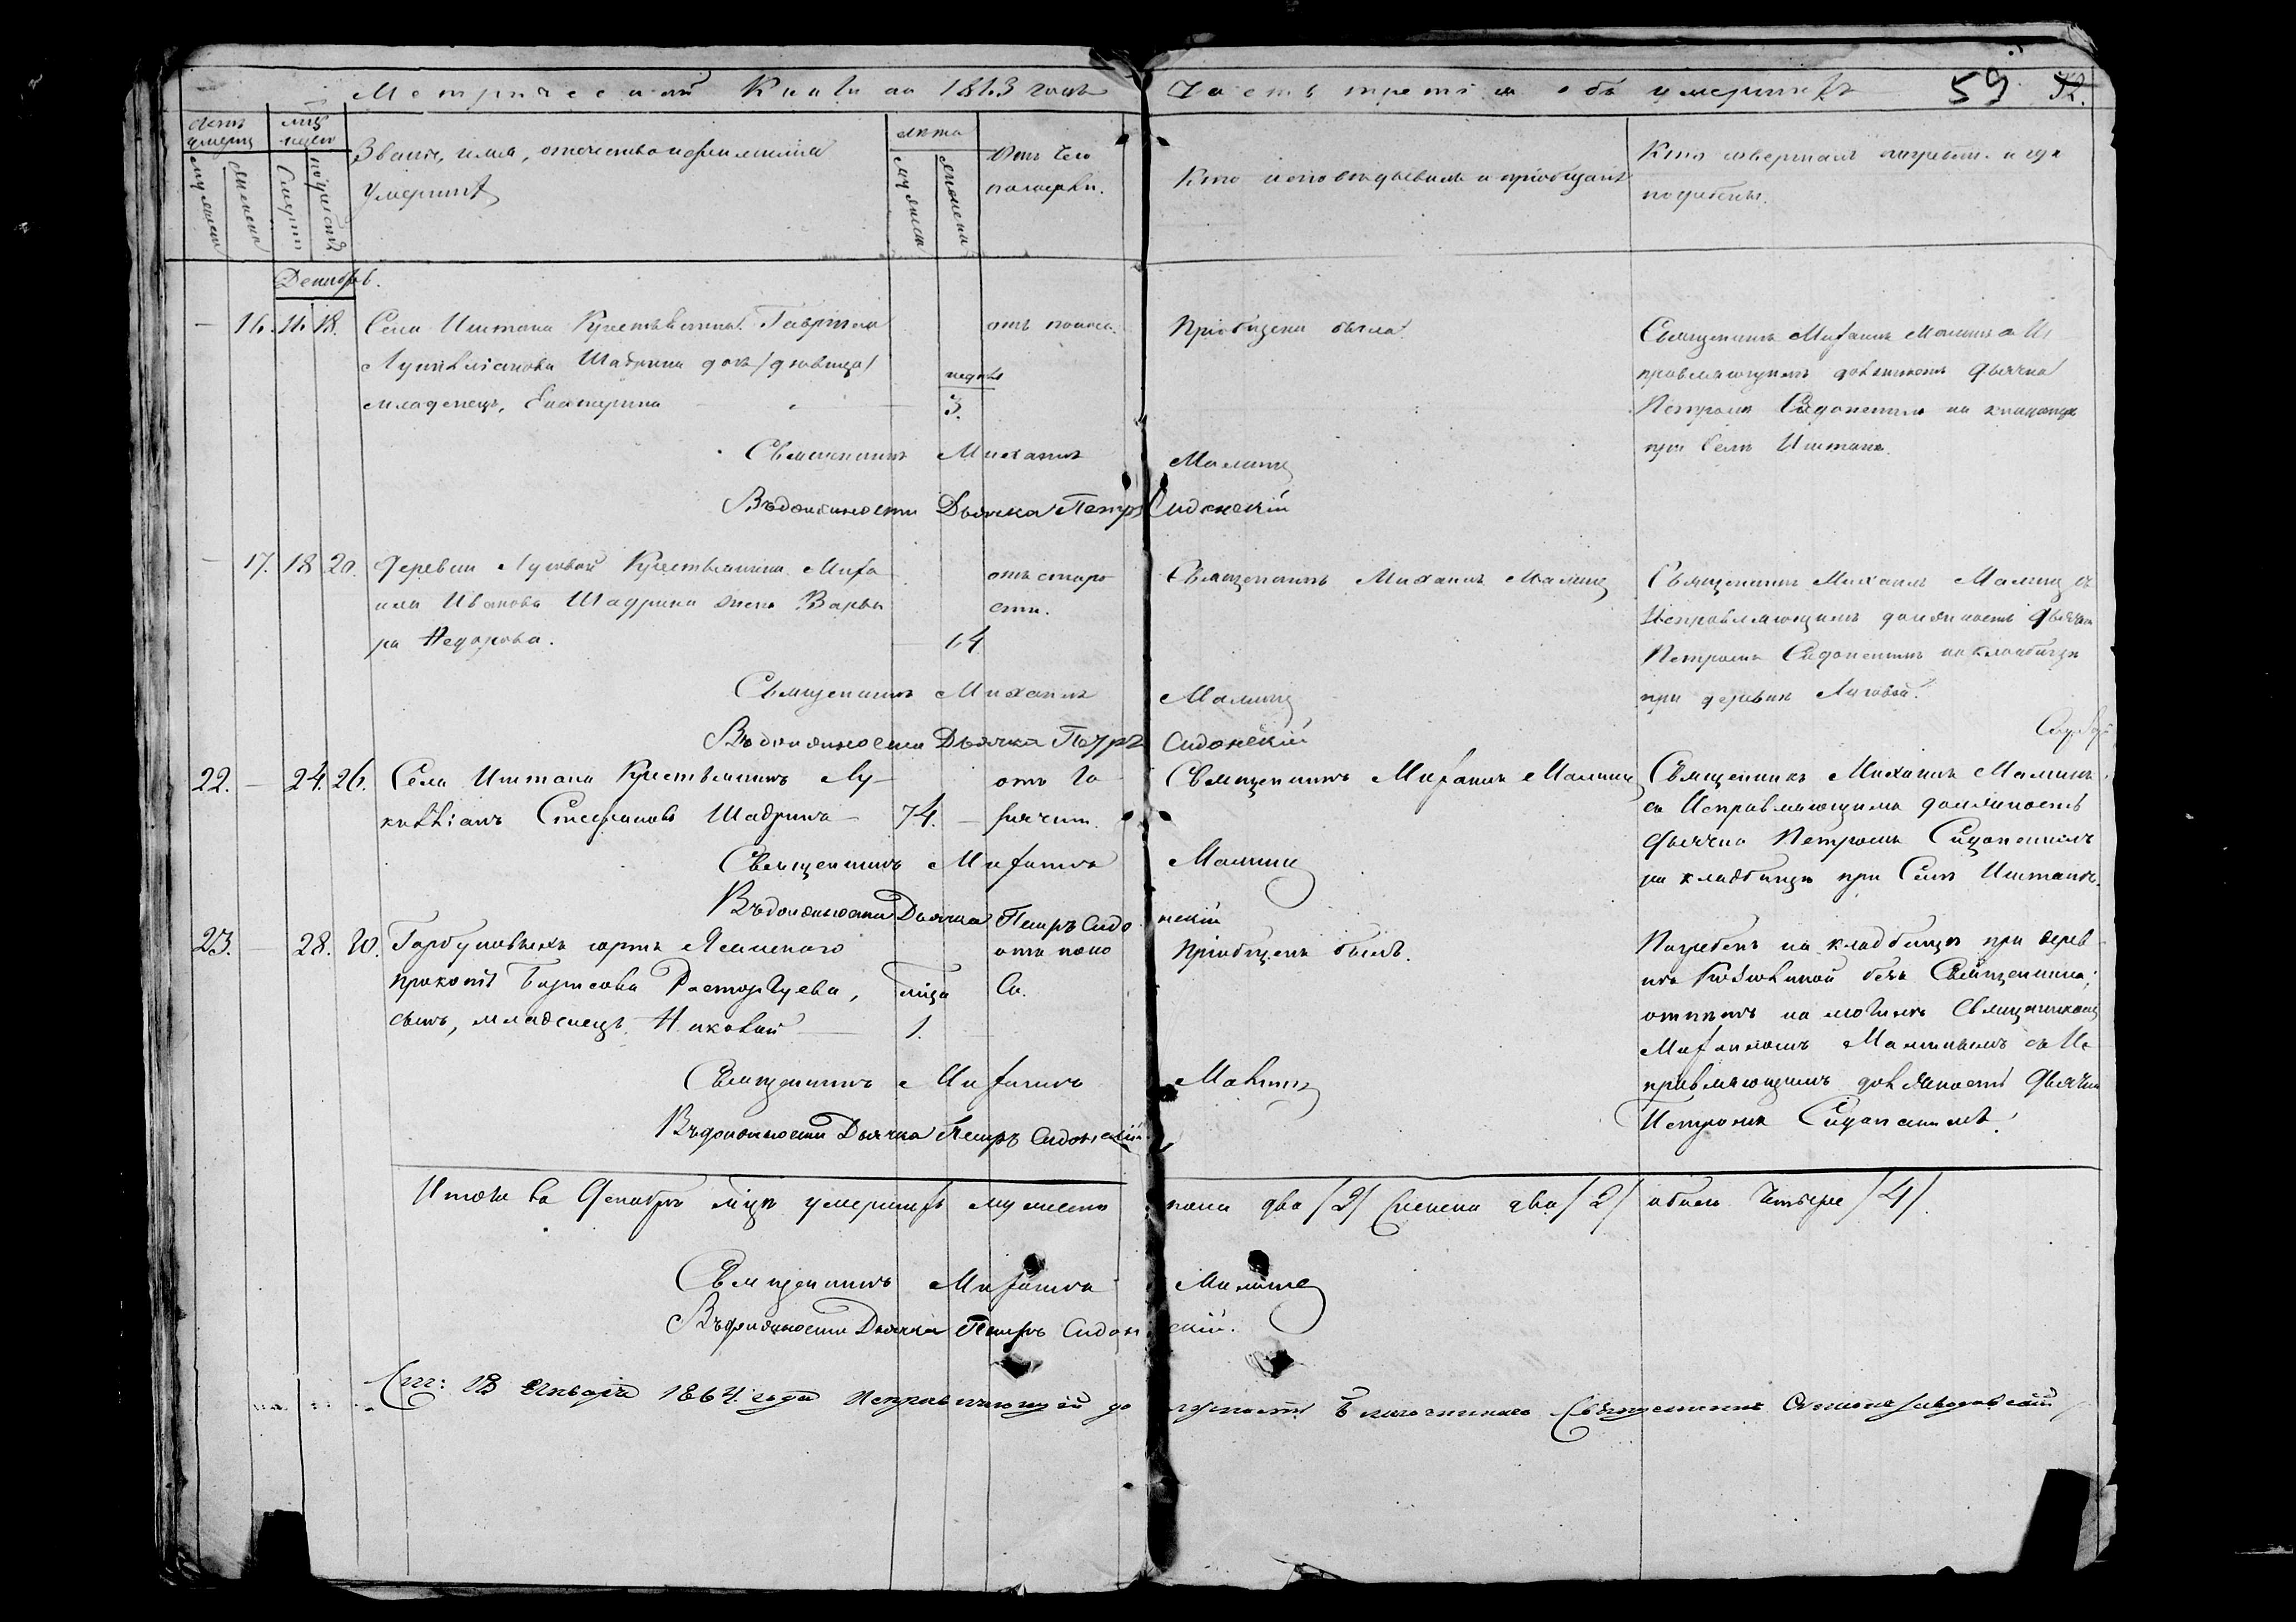 Метрической Книги на 1863 годъ Часть третія объ умершихъ 59
Счетъ умерш.
мужеска
женска
Мѣс. и день
Смерти
погребенія
Званіе, имя, отечество и фамилія
Умершихъ
лѣта
мужеска
женска
Отъ чего
померъ.
Кто исповѣдывалъ и пріобщалъ
Кто совершалъ погребен. и гдѣ
погребены.
Декабрь.
— 16. 16. 18. Села Иштана Крестьянина Гаврила
Лукиліанова Шадрина дочь /дѣвица/
младенецъ, Екатерина
недѣль
3.
отъ поноса.
Пріобщена была.
Священникъ Михаилъ Малинъ съ Ис
правляющимъ должность дьячка
Петромъ Сидонскимъ на кладбищѣ
при Селѣ Иштанѣ.
Священникъ Михаилъ Малинъ
Въ должности Дьячка Петръ Сидонскій
— 17. 18 20. Деревни Луговой Крестьянина Миха
ила Иванова Шадрина жена Варва
ра Федорова. 64
отъ старо
сти.
Священникъ Михаилъ Малинъ
Священникъ Михаилъ Малинъ съ
Исправляющимъ должность дьячка
Петромъ Сидонскимъ на кладбищѣ
при деревнѣ Луговой.
Священникъ Михаилъ Малинъ
Въ должности Дьячка Петръ Сидонскій
22. — 24. 26. Села Иштана Крестьянинъ Лу
киліанъ Стефановъ Шадринъ — 74. —
отъ го
рячки.
Священникъ Михаилъ Малинъ
Священникъ Михаилъ Малинъ
съ Исправляющимъ должность
дьячка Петромъ Сидонскимъ
на кладбищѣ при Селѣ Иштанѣ.
Священникъ Михаилъ Малинъ
Въ должности Дьячка Петръ Сидонскій
23. — 28. 30. Горбуновыхъ юртъ Ясашнаго
Прокопія Борисова Расторгуева,
сынъ, младенецъ Николай
мѣсяца
1.
отъ поно
са.
Пріобщенъ былъ.
Погребенъ на кладбищѣ при дерев
нѣ безъ Священника;
отпѣтъ на могилѣ Священникомъ
Михаиломъ Малинымъ съ Ис
правляющимъ должность Дьячка
Петромъ Сидонскимъ.
Священникъ Михаилъ Малинъ
Въ должности Дьячка Петръ Сидонскій
Итого въ Декабрѣ мѣсяцѣ умершихъ мужеска пола два /2/ женска два /2/ обоего четыре /4/.
Священникъ Михаилъ Малинъ
Въ должности Дьячка Петръ Сидонскій.
13 Января 1864 года Исправляющій должность Благочиннаго Священникъ